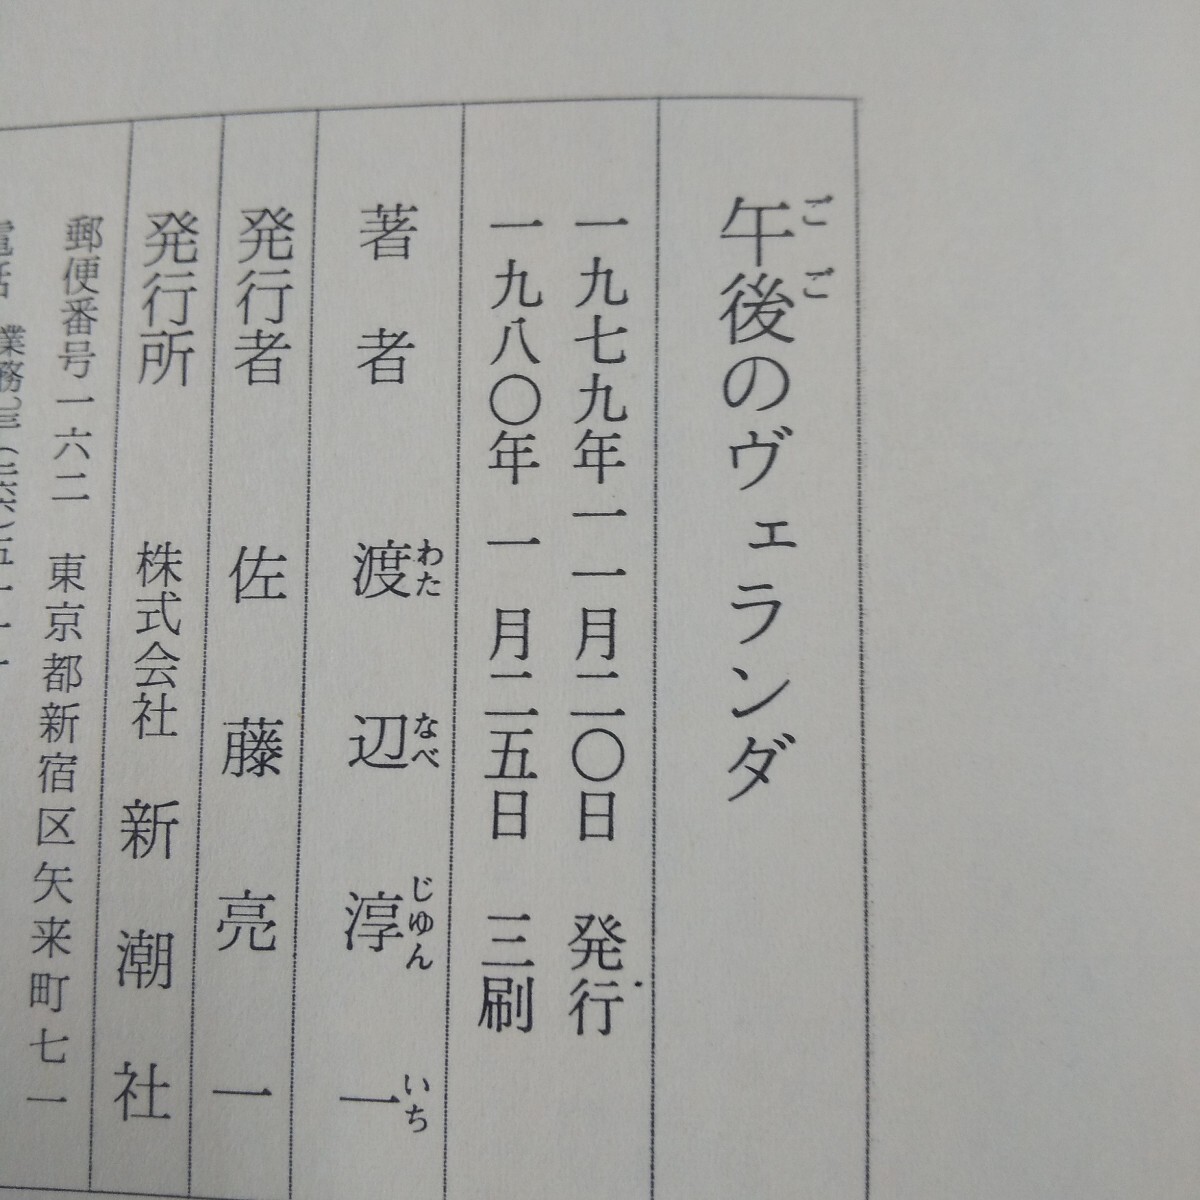 午後のヴェランダ
ごご
一九七九年一一月二〇日 発行
一九八〇年 一 月二五日 三刷
著者 渡辺淳一
わたなべじゅんいち
発行者 佐藤亮一
発行所 株式会社 新潮社
郵便番号一六二 東京都新宿区矢来町七一
電話 業務